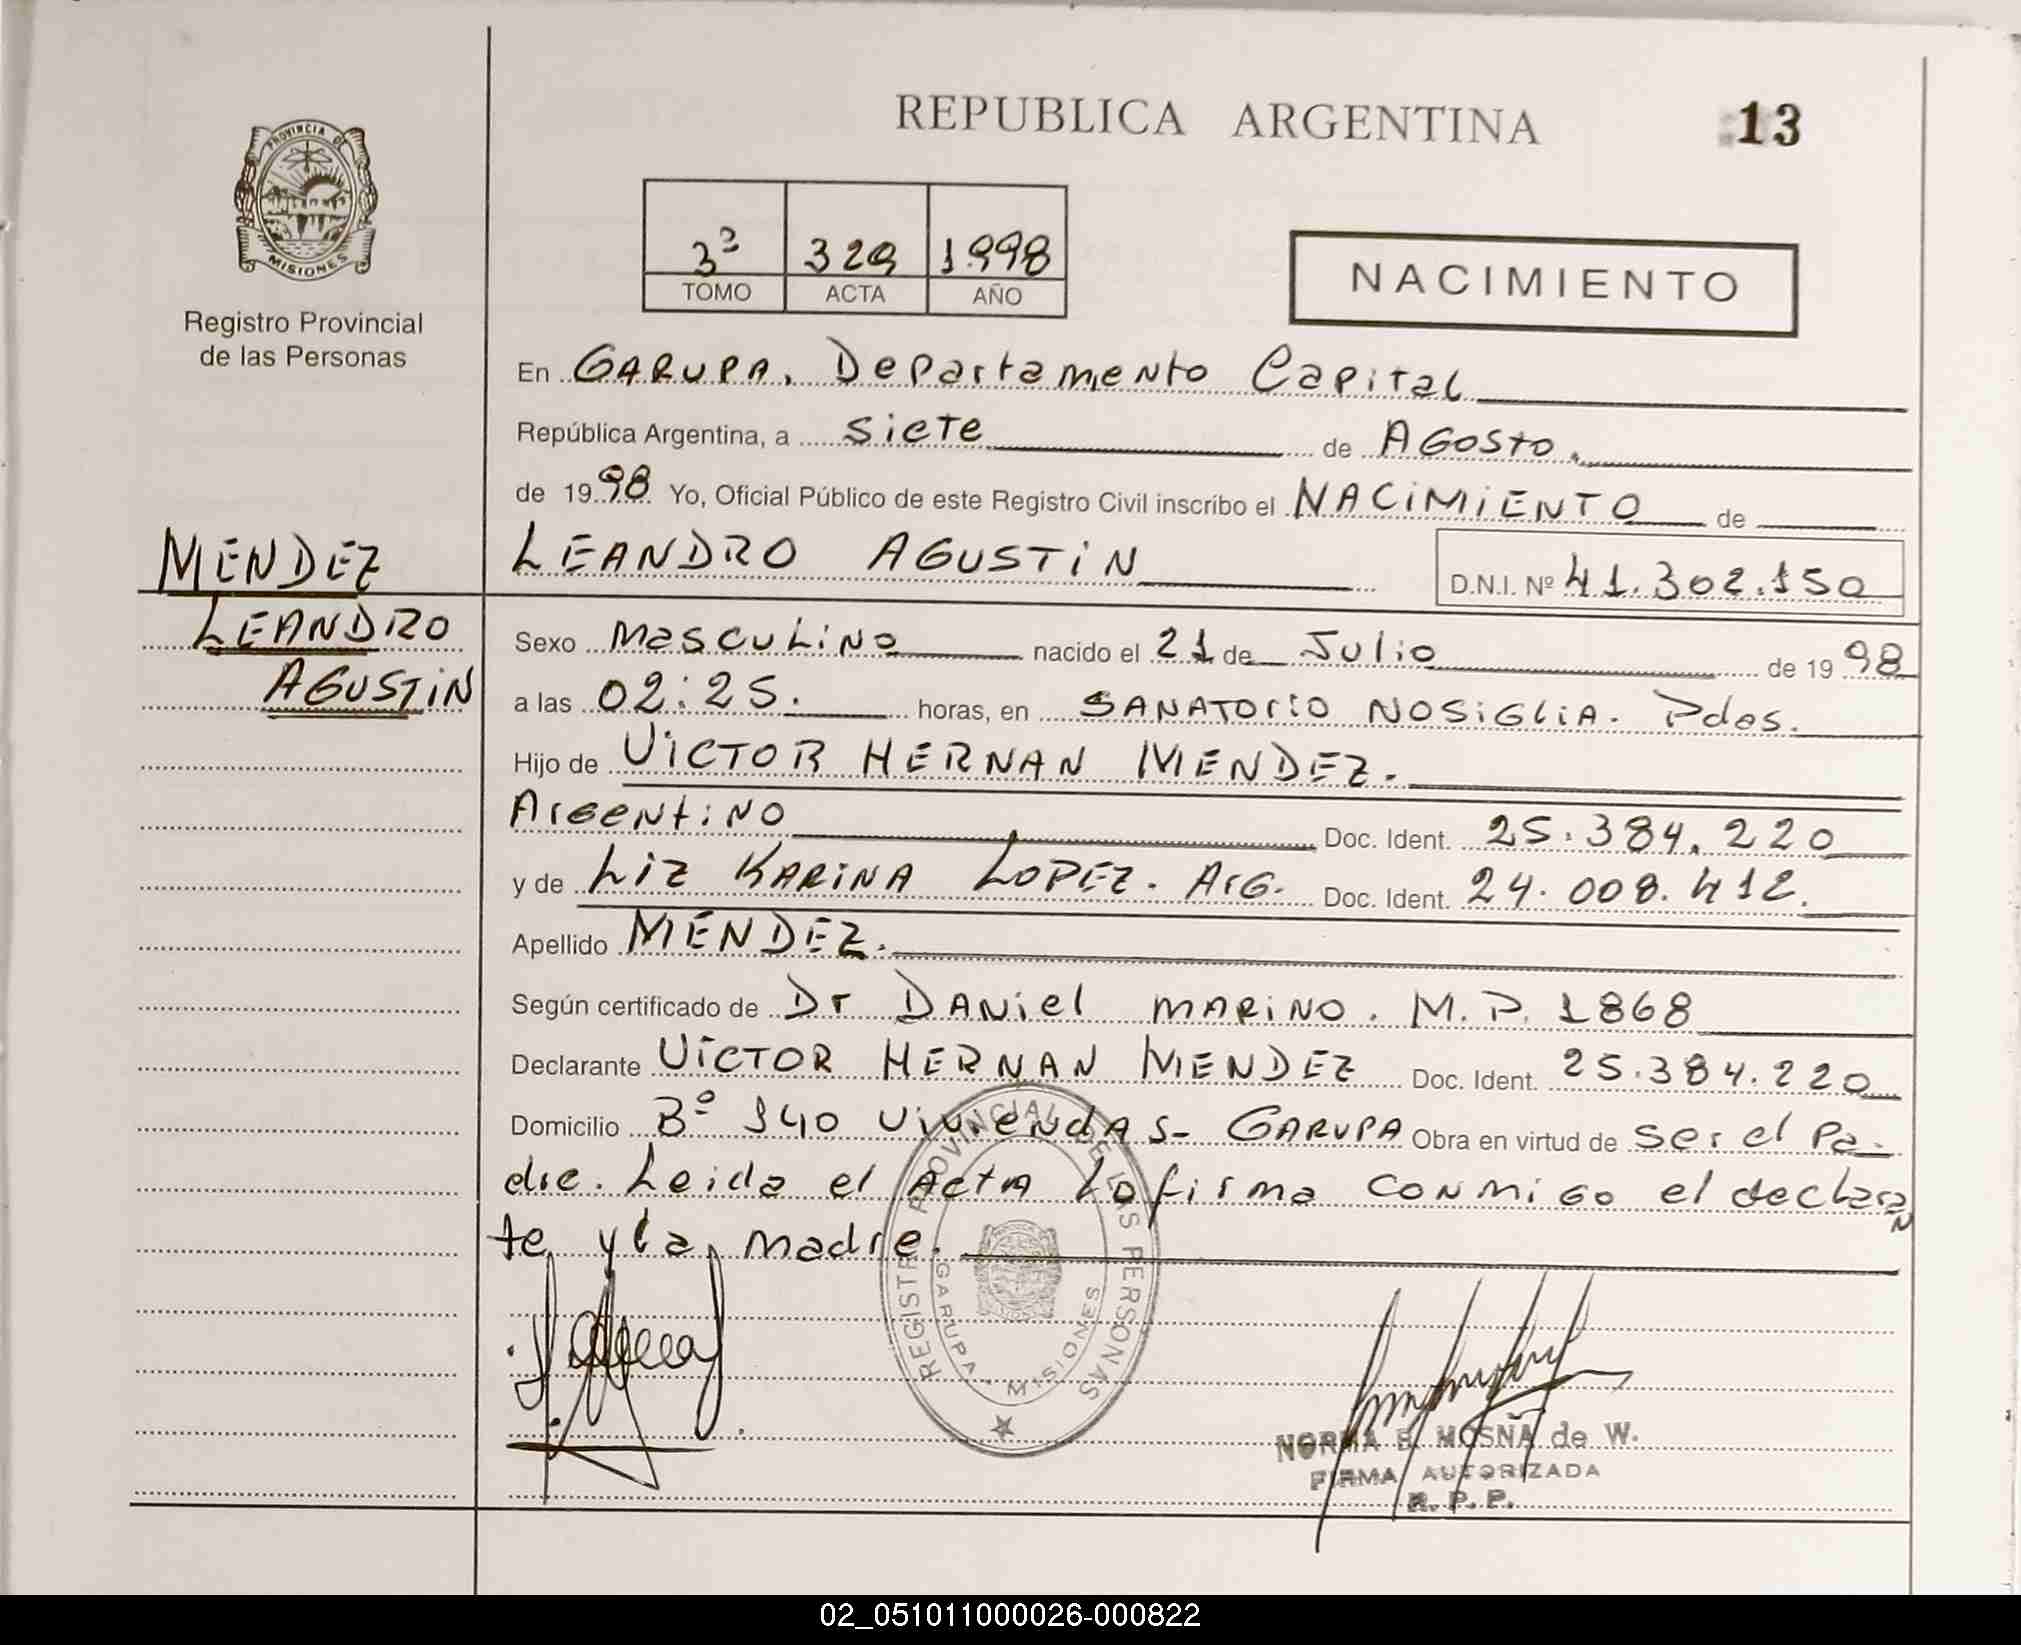 REPUBLICA ARGENTINA
13
PROVINCIA DE
MISIONES
Registro Provincial
de las Personas
3º 329 1.998
TOMO ACTA AÑO
NACIMIENTO
En GARUPA. Departamento Capital
República Argentina, a siete de AGOSTO.
de 19 98 Yo, Oficial Público de este Registro Civil inscribo el NACIMIENTO de
MENDEZ
LEANDRO
AGUSTIN
LEANDRO AGUSTIN
D.N.I. Nº 41.302.150
Sexo masculino nacido el 21 de Julio de 19 98
a las 02:25. horas, en SANATORIO NOSIGLIA. Pdas.
Hijo de VICTOR HERNAN MENDEZ.
Argentino Doc. Ident. 25.384.220
y de LIZ KARINA LOPEZ. Arg. Doc. Ident. 24.008.412.
Apellido MENDEZ.
Según certificado de Dr DANiel MARINO. M.P. 1868
Declarante VICTOR HERNAN MENDEZ Doc. Ident. 25.384.220
Domicilio Bº 140 Viviendas- GARUPA Obra en virtud de ser el Pa-
dre. Leida el Acta La firma conmigo el declaran
te y la madre.
REGISTRO PROVINCIAL DE LAS PERSONAS
GARUPA - MISIONES
NORMA B. MOSÑA de W.
FIRMA AUTORIZADA
R. P. P.
02_051011000026-000822